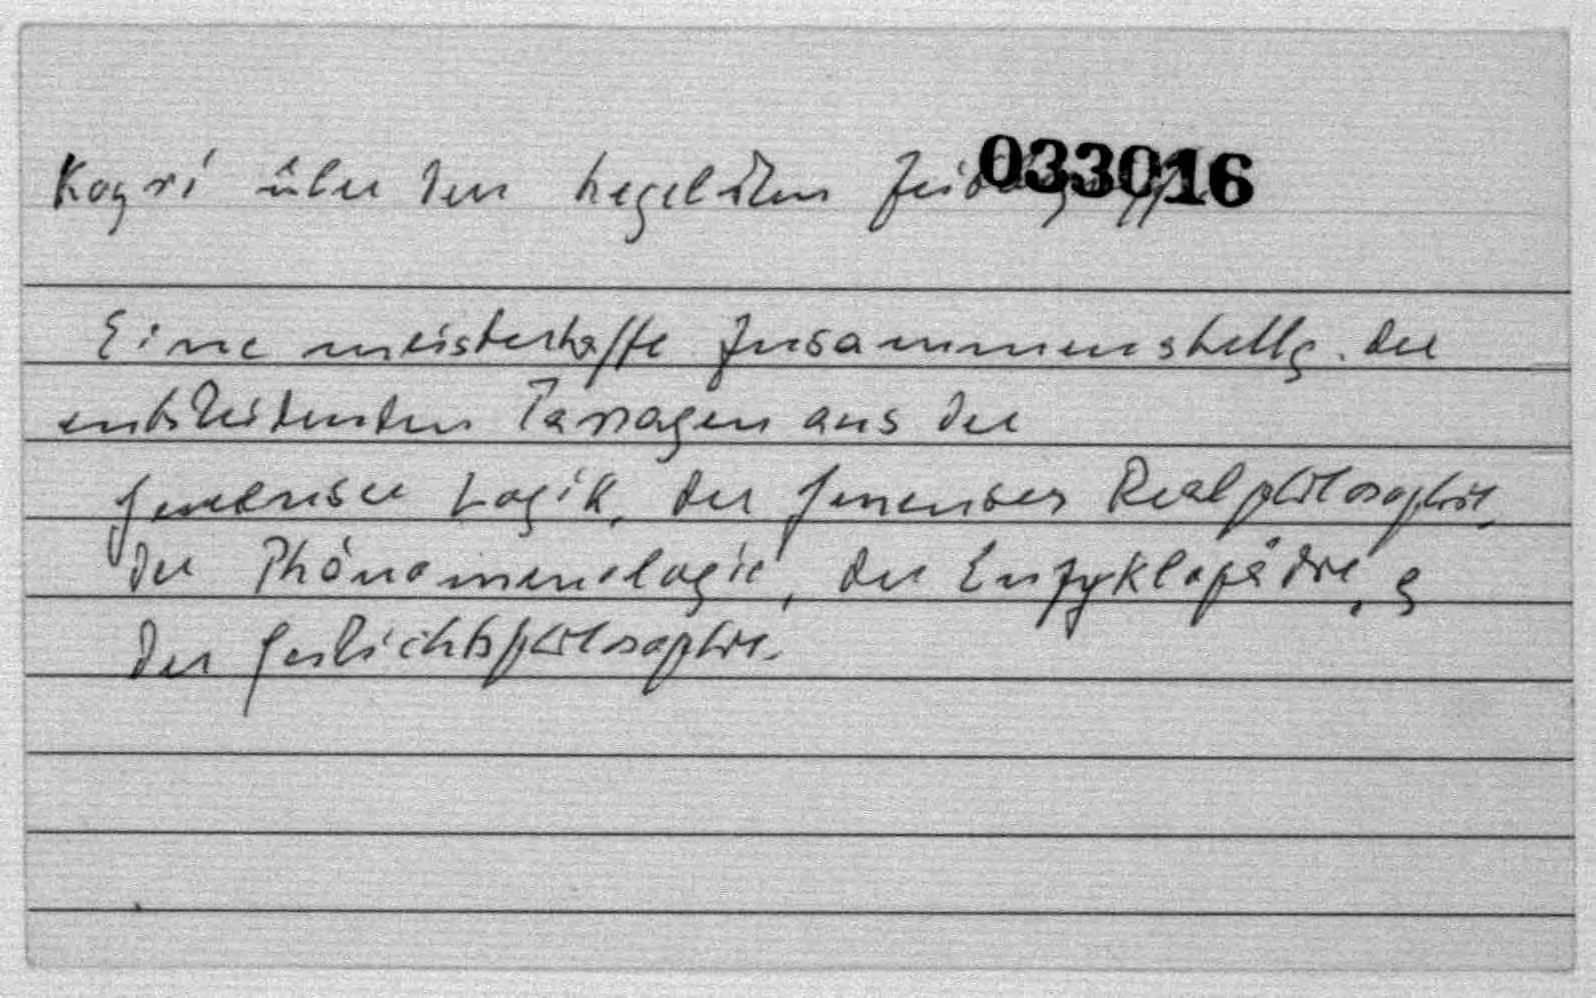 Koyré über den hegelschen Zeitbegriff. 033016
Eine meisterhafte Zusammenstellg. der
entscheidenden Passagen aus der
Jenenser Logik, der Jenenser Realphilosophie,
der Phänomenologie, der Enzyklopädie, &
der Geschichtsphilosophie.